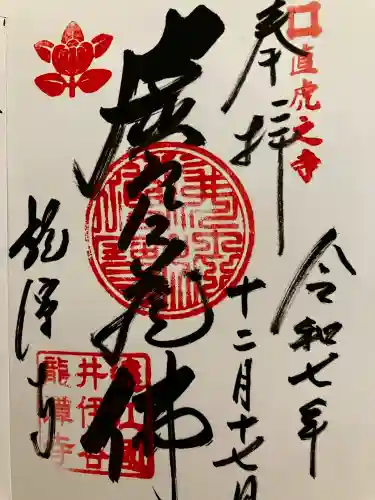 直虎之寺
奉拝
令和七年
十二月十七日
虚空蔵佛
龍潭寺
遠江国
井伊谷
龍潭寺